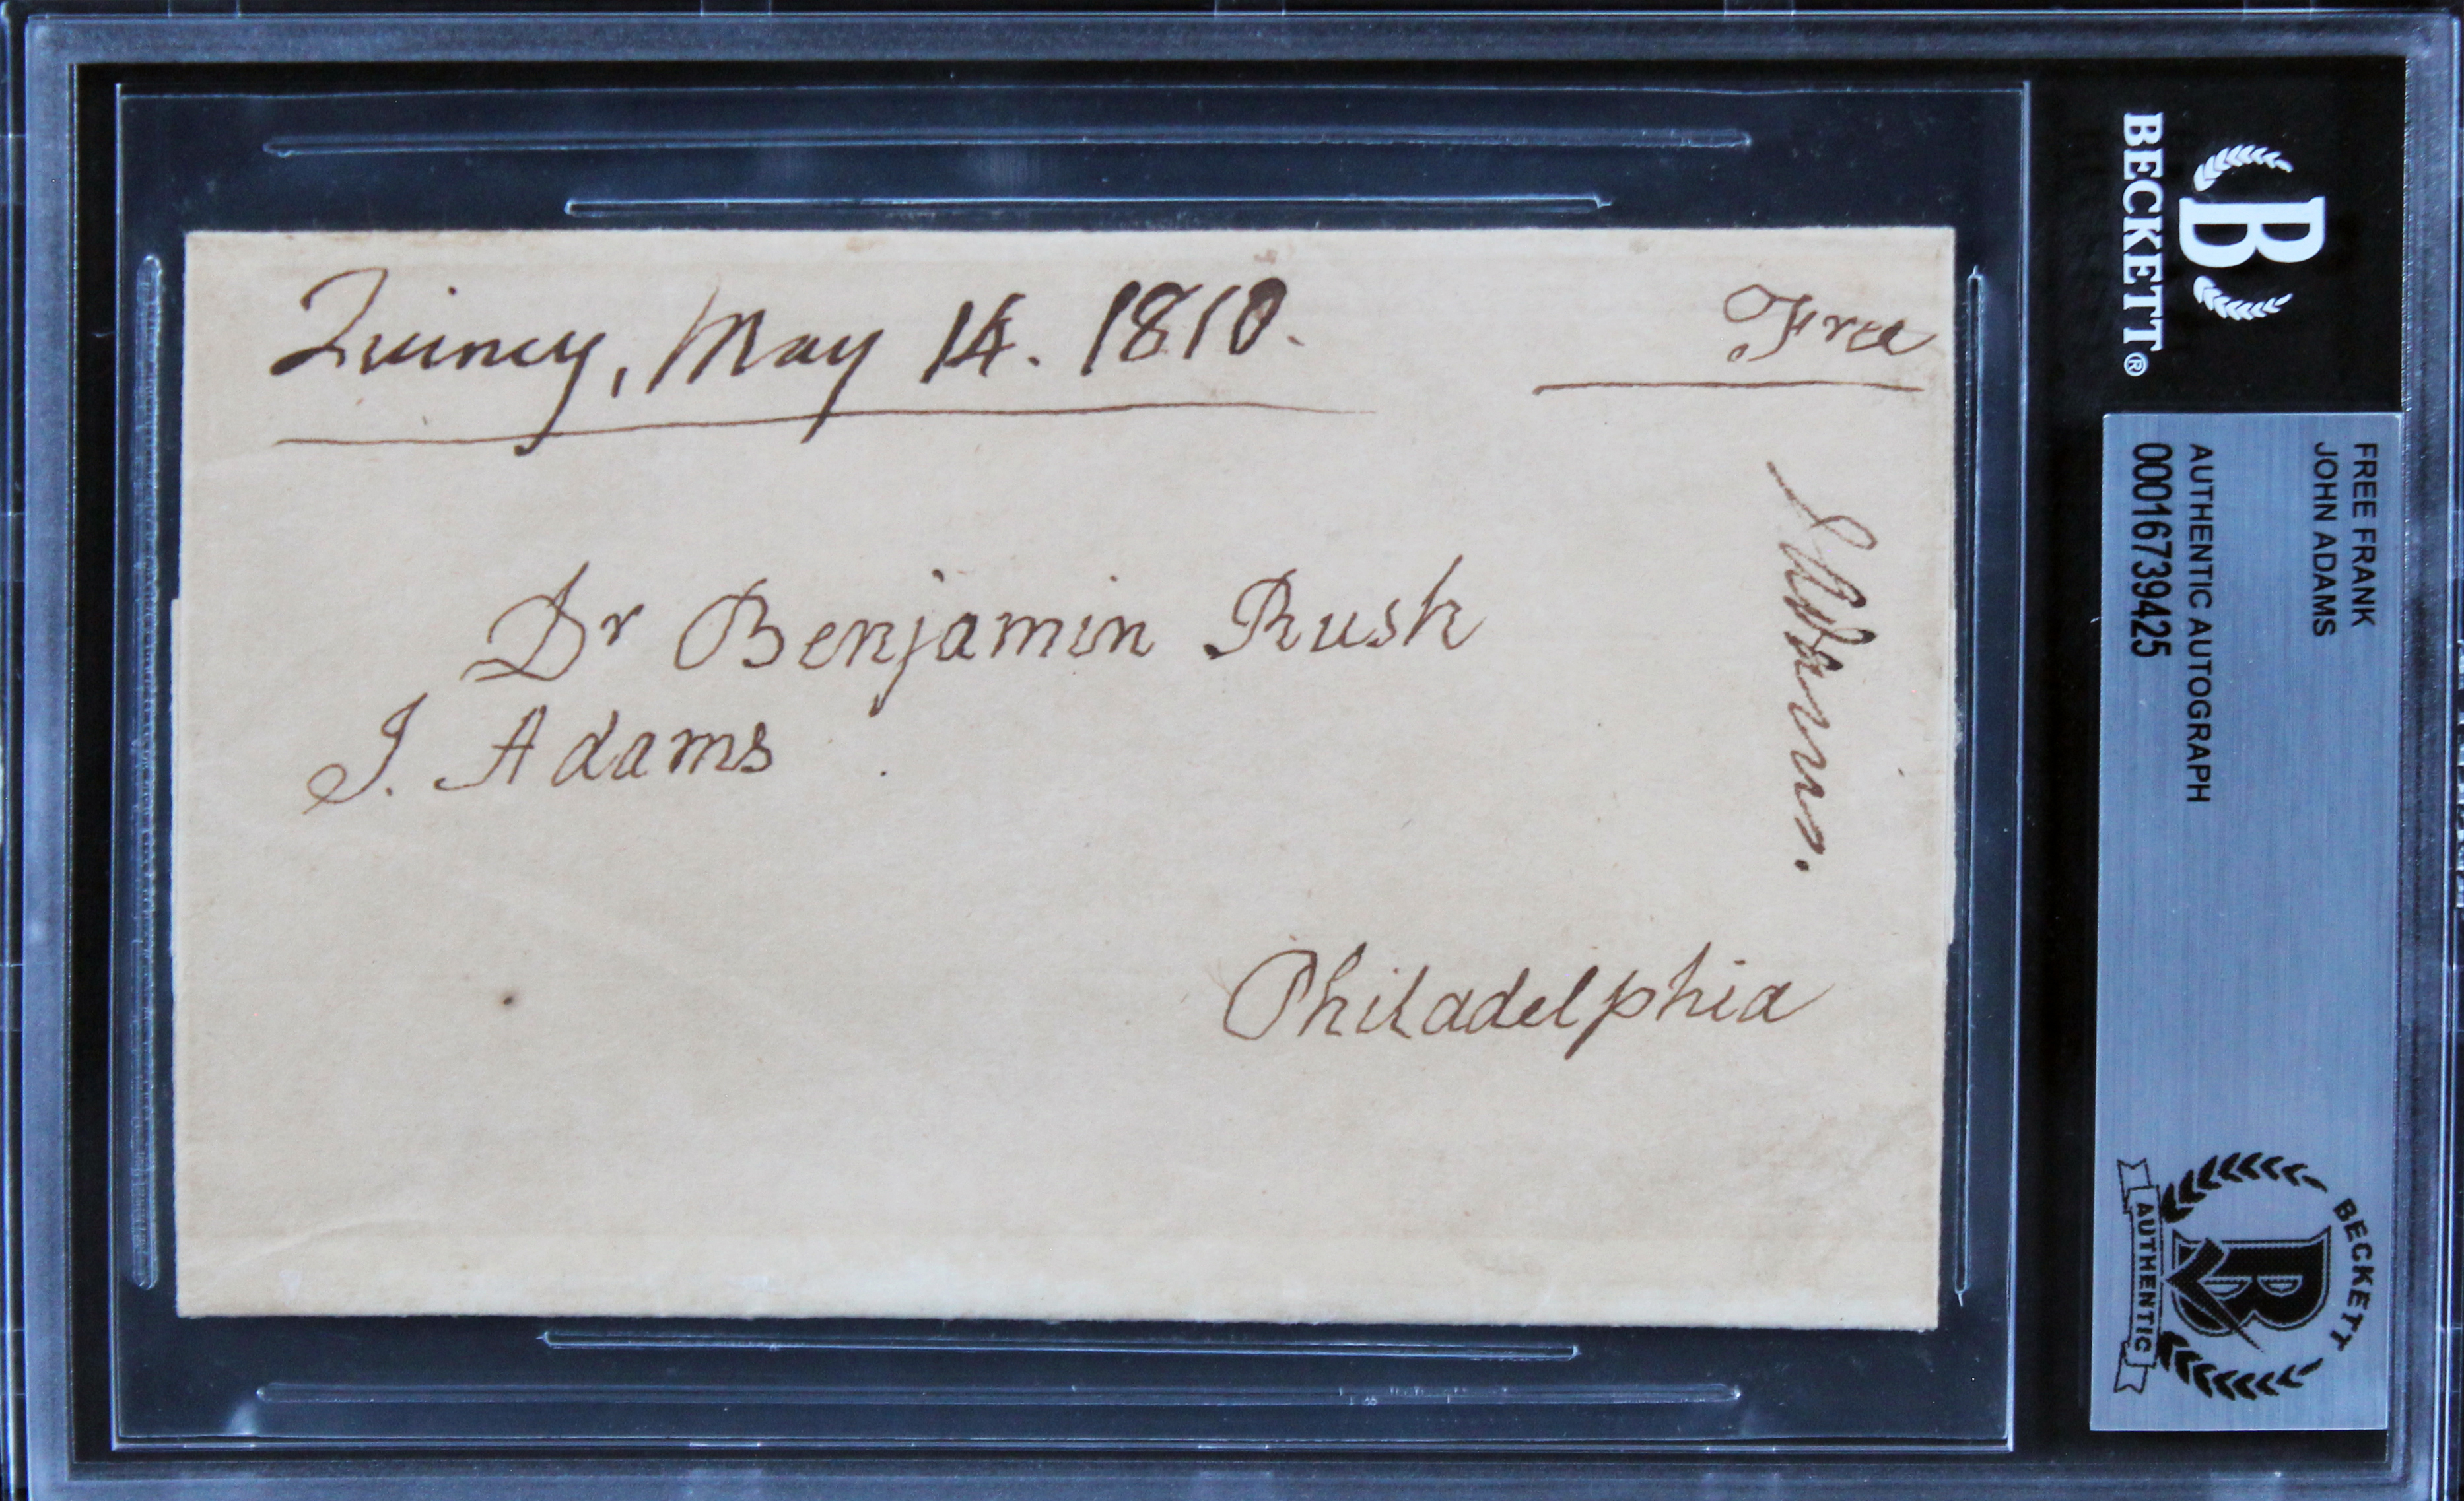 Quincy, May 14. 1810.
Free
Dr Benjamin Rush
J. Adams
JAdams.
Philadelphia
B
BECKETT®
FREE FRANK
JOHN ADAMS
AUTHENTIC AUTOGRAPH
00016739425
BECKETT
B
AUTHENTIC